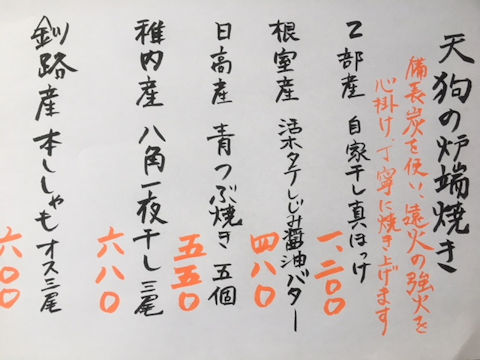 天狗の炉端焼き
備長炭を使い、遠火の強火を
心掛け、丁寧に焼き上げます
乙部産 自家干し真ほっけ
一、二〇〇
根室産 活ホタテしじみ醤油バター
四八〇
日高産 青つぶ焼き 五個
五五〇
稚内産 八角一夜干し 三尾
六八〇
釧路産 本ししゃもオス三尾
六〇〇